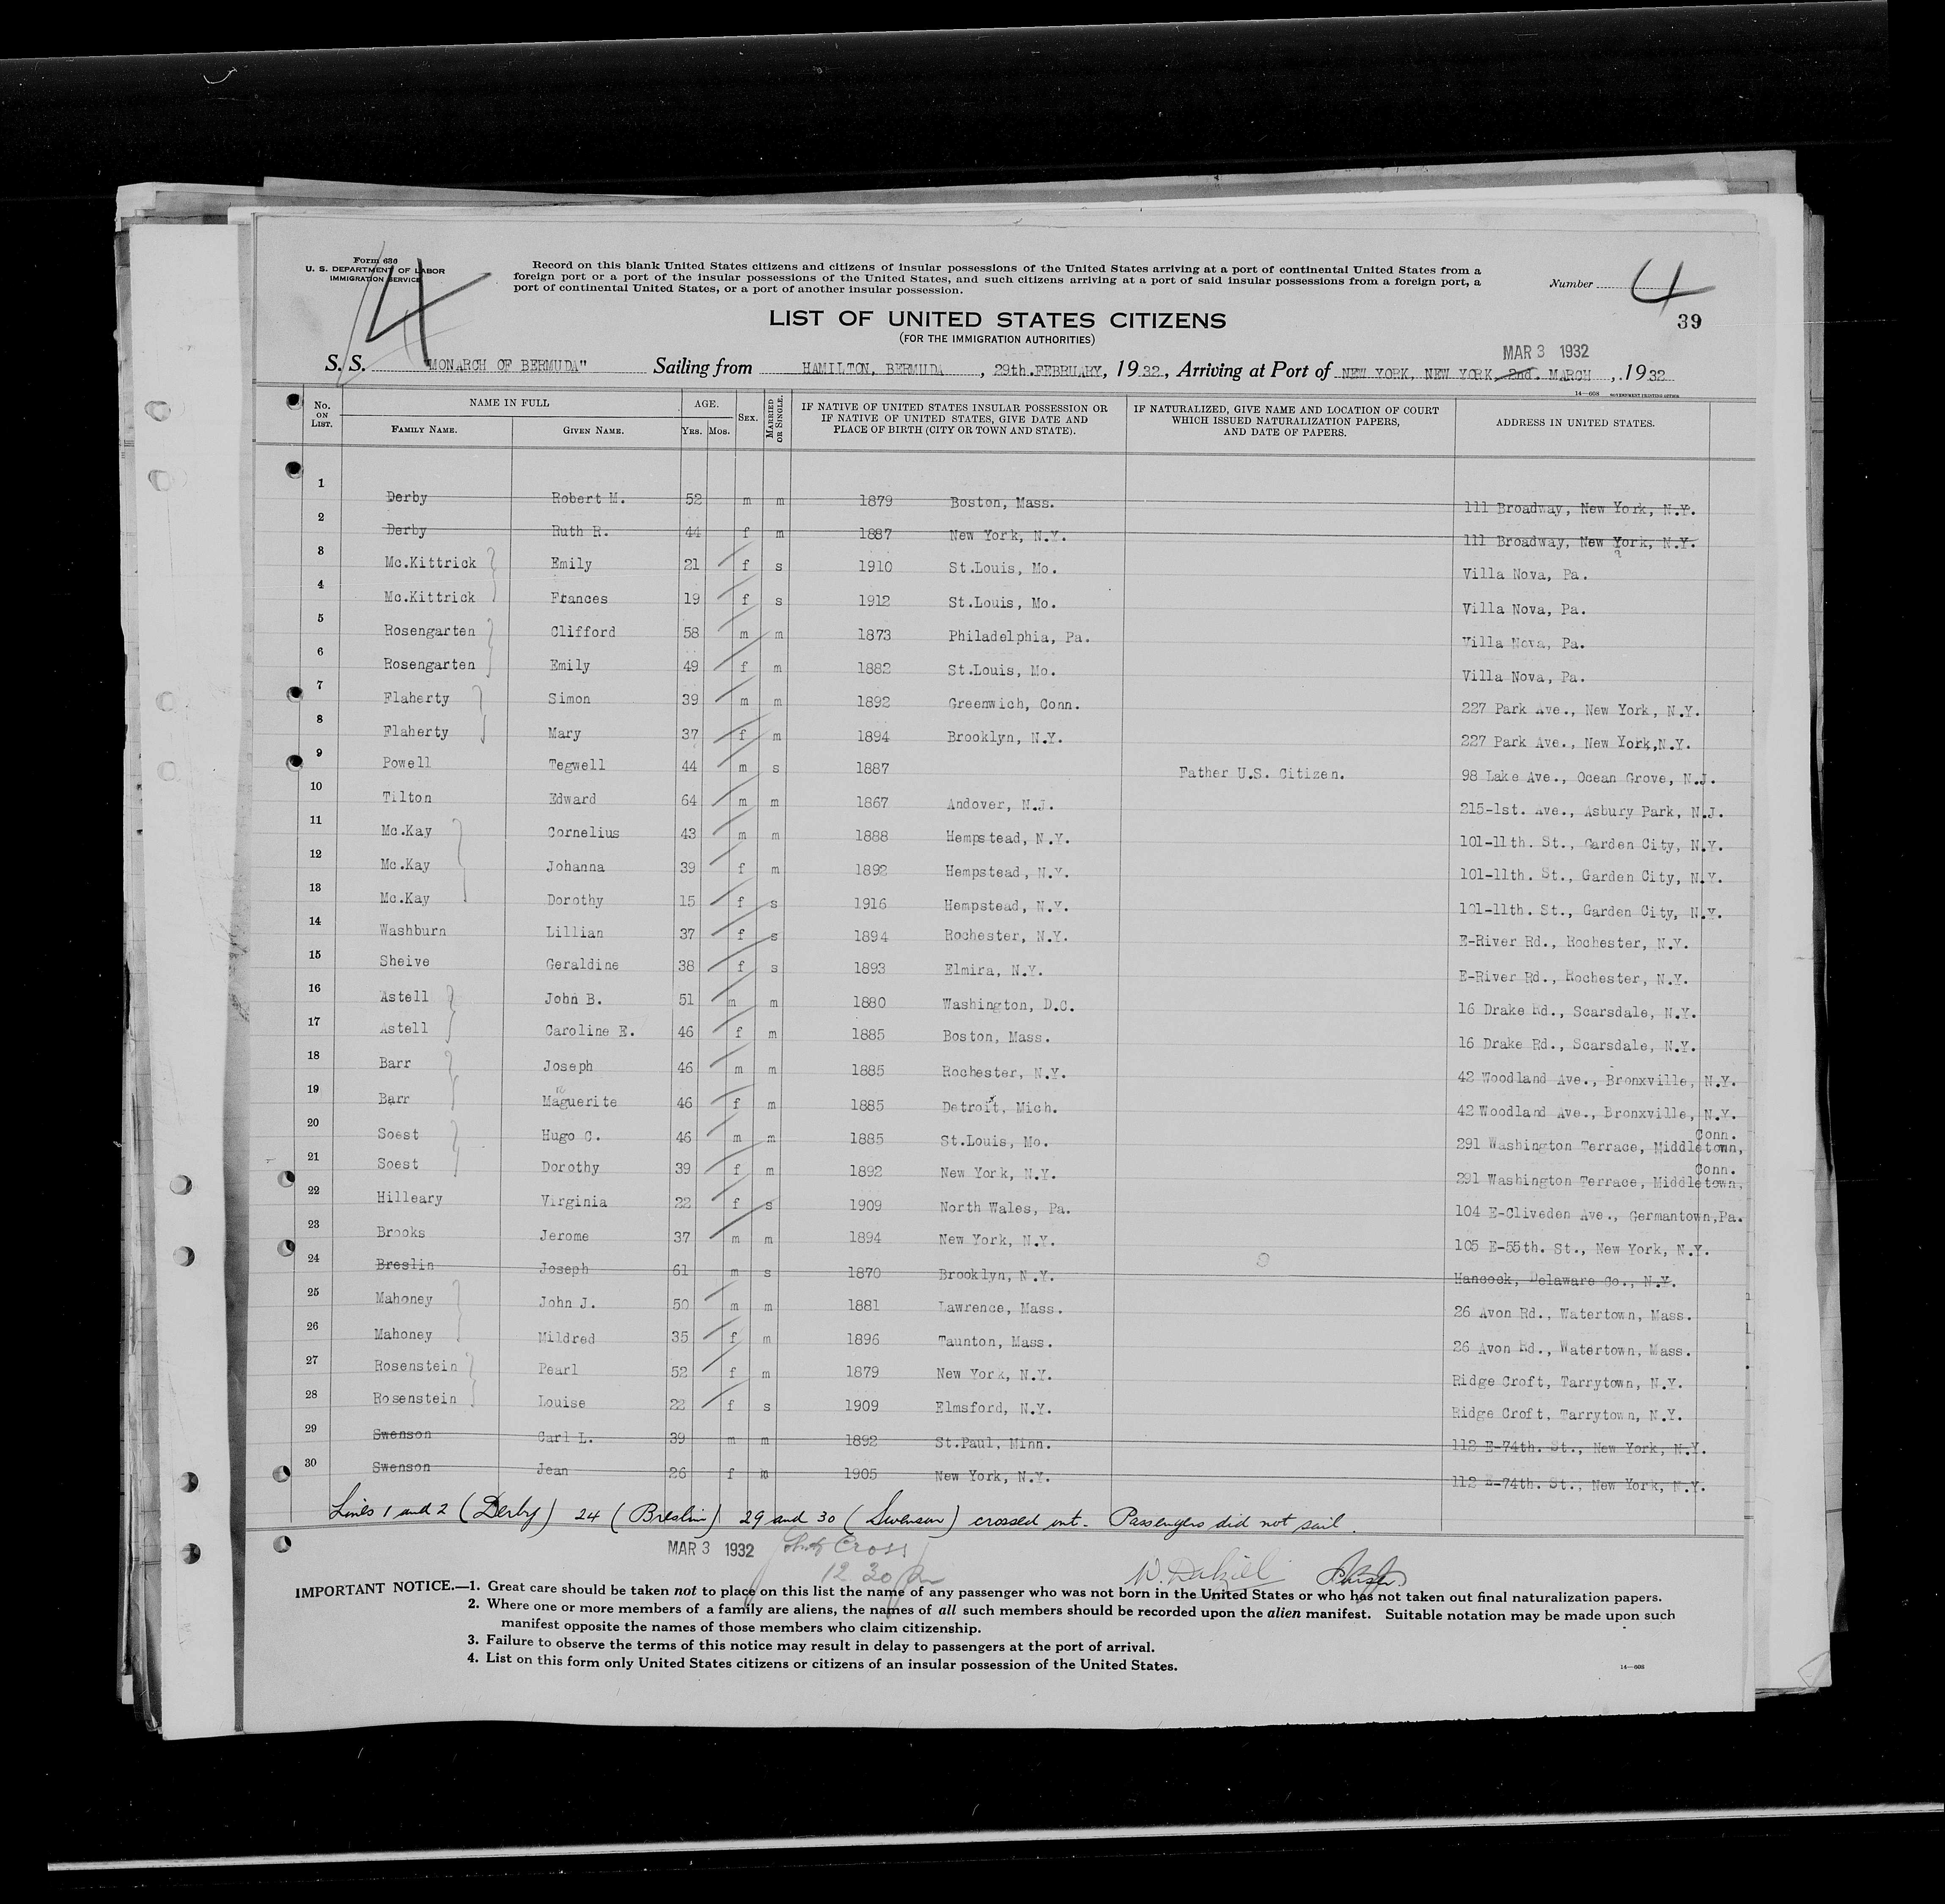 Form 636
U. S. DEPARTMENT OF LABOR
IMMIGRATION SERVICE
4
Record on this blank United States citizens and citizens of insular possessions of the United States arriving at a port of continental United States from a
foreign port or a port of the insular possessions of the United States, and such citizens arriving at a port of said insular possessions from a foreign port, a
port of continental United States, or a port of another insular possession.
Number 4
39
LIST OF UNITED STATES CITIZENS
(FOR THE IMMIGRATION AUTHORITIES)
MAR 3 1932
S. S. "MONARCH OF BERMUDA" Sailing from HAMILTON, BERMUDA, 29th.FEBRUARY, 1932, Arriving at Port of NEW YORK, NEW YORK, 2nd. MARCH, 1932
14—608 GOVERNMENT PRINTING OFFICE
No. ON LIST. NAME IN FULL FAMILY NAME. GIVEN NAME. AGE. YRS. MOS. SEX. MARRIED OR SINGLE. IF NATIVE OF UNITED STATES INSULAR POSSESSION OR IF NATIVE OF UNITED STATES, GIVE DATE AND PLACE OF BIRTH (CITY OR TOWN AND STATE). IF NATURALIZED, GIVE NAME AND LOCATION OF COURT WHICH ISSUED NATURALIZATION PAPERS, AND DATE OF PAPERS. ADDRESS IN UNITED STATES.
1 Derby Robert M. 52 m m 1879 Boston, Mass. 111 Broadway, New York, N.Y.
2 Derby Ruth R. 44 f m 1887 New York, N.Y. 111 Broadway, New York, N.Y.
3 Mc.Kittrick Emily 21 f s 1910 St.Louis, Mo. Villa Nova, Pa.
4 Mc.Kittrick Frances 19 f s 1912 St.Louis, Mo. Villa Nova, Pa.
5 Rosengarten Clifford 58 m m 1873 Philadelphia, Pa. Villa Nova, Pa.
6 Rosengarten Emily 49 f m 1882 St.Louis, Mo. Villa Nova, Pa.
7 Flaherty Simon 39 m m 1892 Greenwich, Conn. 227 Park Ave., New York, N.Y.
8 Flaherty Mary 37 f m 1894 Brooklyn, N.Y. 227 Park Ave., New York,N.Y.
9 Powell Tegwell 44 m s 1887 Father U.S. Citizen. 98 Lake Ave., Ocean Grove, N.J.
10 Tilton Edward 64 m m 1867 Andover, N.J. 215-1st. Ave., Asbury Park, N.J.
11 Mc.Kay Cornelius 43 m m 1888 Hempstead, N.Y. 101-11th. St., Garden City, N.Y.
12 Mc.Kay Johanna 39 f m 1892 Hempstead, N.Y. 101-11th. St., Garden City, N.Y.
13 Mc.Kay Dorothy 15 f s 1916 Hempstead, N.Y. 101-11th. St., Garden City, N.Y.
14 Washburn Lillian 37 f s 1894 Rochester, N.Y. E-River Rd., Rochester, N.Y.
15 Sheive Geraldine 38 f s 1893 Elmira, N.Y. E-River Rd., Rochester, N.Y.
16 Astell John B. 51 m m 1880 Washington, D.C. 16 Drake Rd., Scarsdale, N.Y.
17 Astell Caroline E. 46 f m 1885 Boston, Mass. 16 Drake Rd., Scarsdale, N.Y.
18 Barr Joseph 46 m m 1885 Rochester, N.Y. 42 Woodland Ave., Bronxville, N.Y.
19 Barr Maguerite 46 f m 1885 Detroit, Mich. 42 Woodland Ave., Bronxville, N.Y.
20 Soest Hugo C. 46 m m 1885 St.Louis, Mo. 291 Washington Terrace, Middletown, Conn.
21 Soest Dorothy 39 f m 1892 New York, N.Y. 291 Washington Terrace, Middletown, Conn.
22 Hilleary Virginia 22 f s 1909 North Wales, Pa. 104 E-Cliveden Ave., Germantown,Pa.
23 Brooks Jerome 37 m m 1894 New York, N.Y. 105 E-55th. St., New York, N.Y.
24 Breslin Joseph 61 m s 1870 Brooklyn, N.Y. Hancock, Delaware Co., N.Y.
25 Mahoney John J. 50 m m 1881 Lawrence, Mass. 26 Avon Rd., Watertown, Mass.
26 Mahoney Mildred 35 f m 1896 Taunton, Mass. 26 Avon Rd., Watertown, Mass.
27 Rosenstein Pearl 52 f m 1879 New York, N.Y. Ridge Croft, Tarrytown, N.Y.
28 Rosenstein Louise 22 f s 1909 Elmsford, N.Y. Ridge Croft, Tarrytown, N.Y.
29 Swenson Carl L. 39 m m 1892 St.Paul, Minn. 112 E-74th. St., New York, N.Y.
30 Swenson Jean 26 f m 1905 New York, N.Y. 112 E-74th. St., New York, N.Y.
Lines 1 and 2 (Derby) 24 (Breslin) 29 and 30 (Swenson) crossed out. Passengers did not sail.
MAR 3 1932 Cross
12 30 pm
IMPORTANT NOTICE.—1. Great care should be taken not to place on this list the name of any passenger who was not born in the United States or who has not taken out final naturalization papers.
2. Where one or more members of a family are aliens, the names of all such members should be recorded upon the alien manifest. Suitable notation may be made upon such
manifest opposite the names of those members who claim citizenship.
3. Failure to observe the terms of this notice may result in delay to passengers at the port of arrival.
4. List on this form only United States citizens or citizens of an insular possession of the United States.
14—608